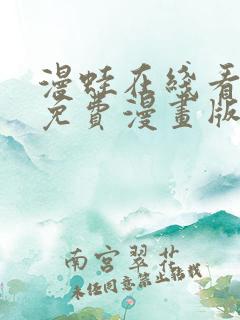 漫蛙在线看
免費漫畫版
南宫翠花
未经同意禁止转载